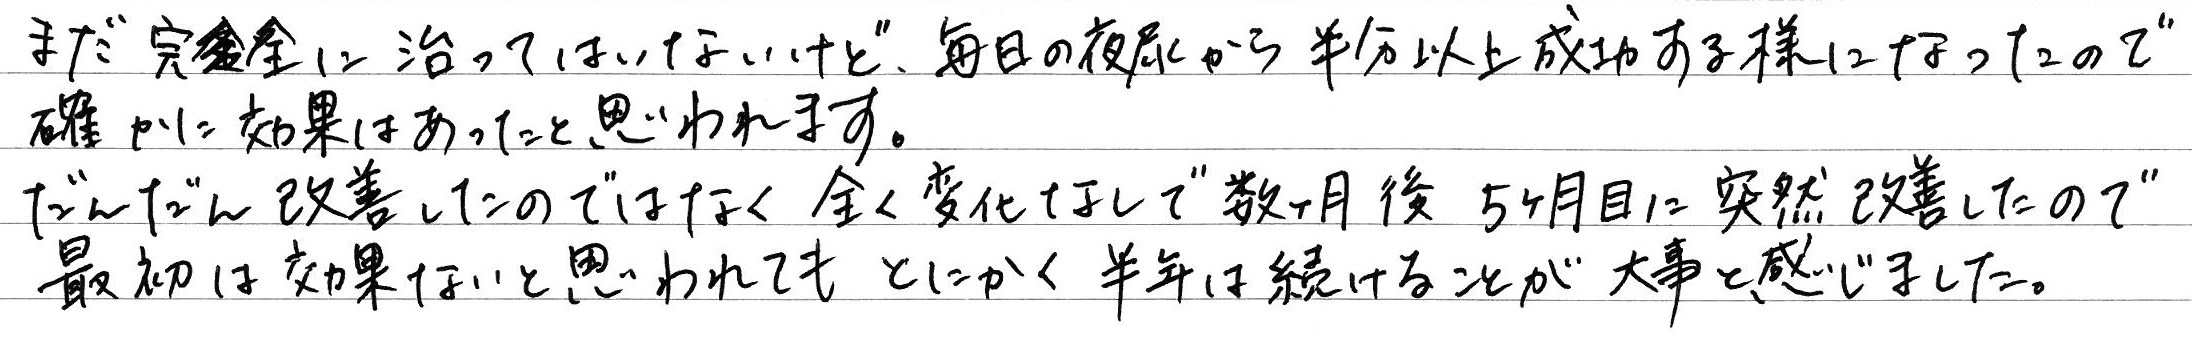 まだ完全に治ってはいないけど、毎日の夜尿から半分以上成功する様になったので
確かに効果はあったと思われます。
だんだん改善したのではなく全く変化なしで数ヶ月後 5ヶ月目に突然改善したので
最初は効果ないと思われても とにかく 半年は続けることが大事と感じました。